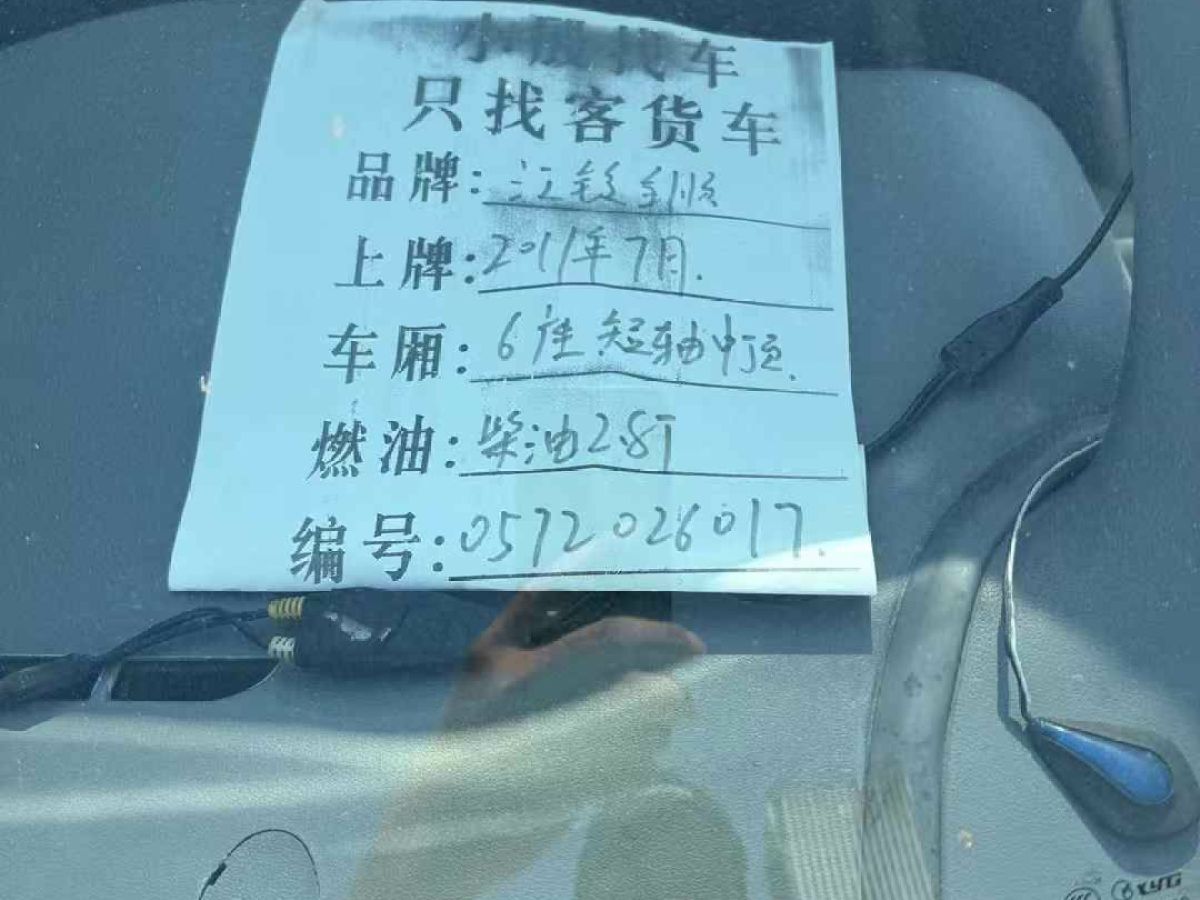 小殷找车
只找客货车
品牌:江铃全顺
上牌:2011年7月.
车厢:6座短轴中顶.
燃油:柴油2.8T
编号:0572026017.
KYG